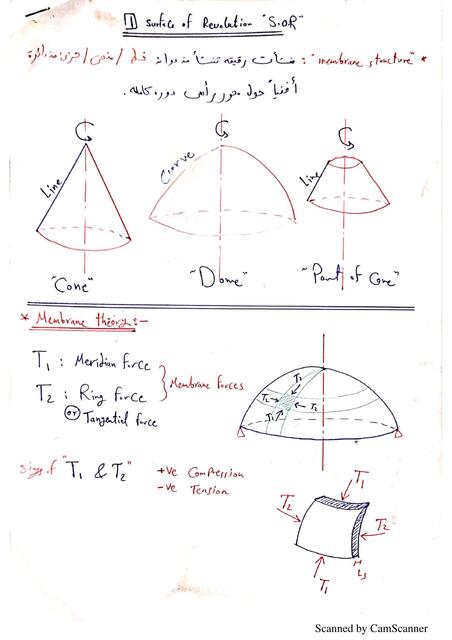 1 Surface of Revolution "S.O.R"
* "membrane structure" : منشآت رقيقه تنشأ من دوران خط / منحنى / جزء من دائرة
أفقياً حول محور رأسى دوره كامله.
Line
Curve
Line
"Cone"
"Dome"
"Part of Cone"
* Membrane theory:-
T1 : Meridian force
T2 : Ring force
or Tangential force
Membrane forces
T1
T2
T2
T1
Sign of "T1 & T2"
+ve Compression
-ve Tension
T1
T2
T2
T1
ts
Scanned by CamScanner